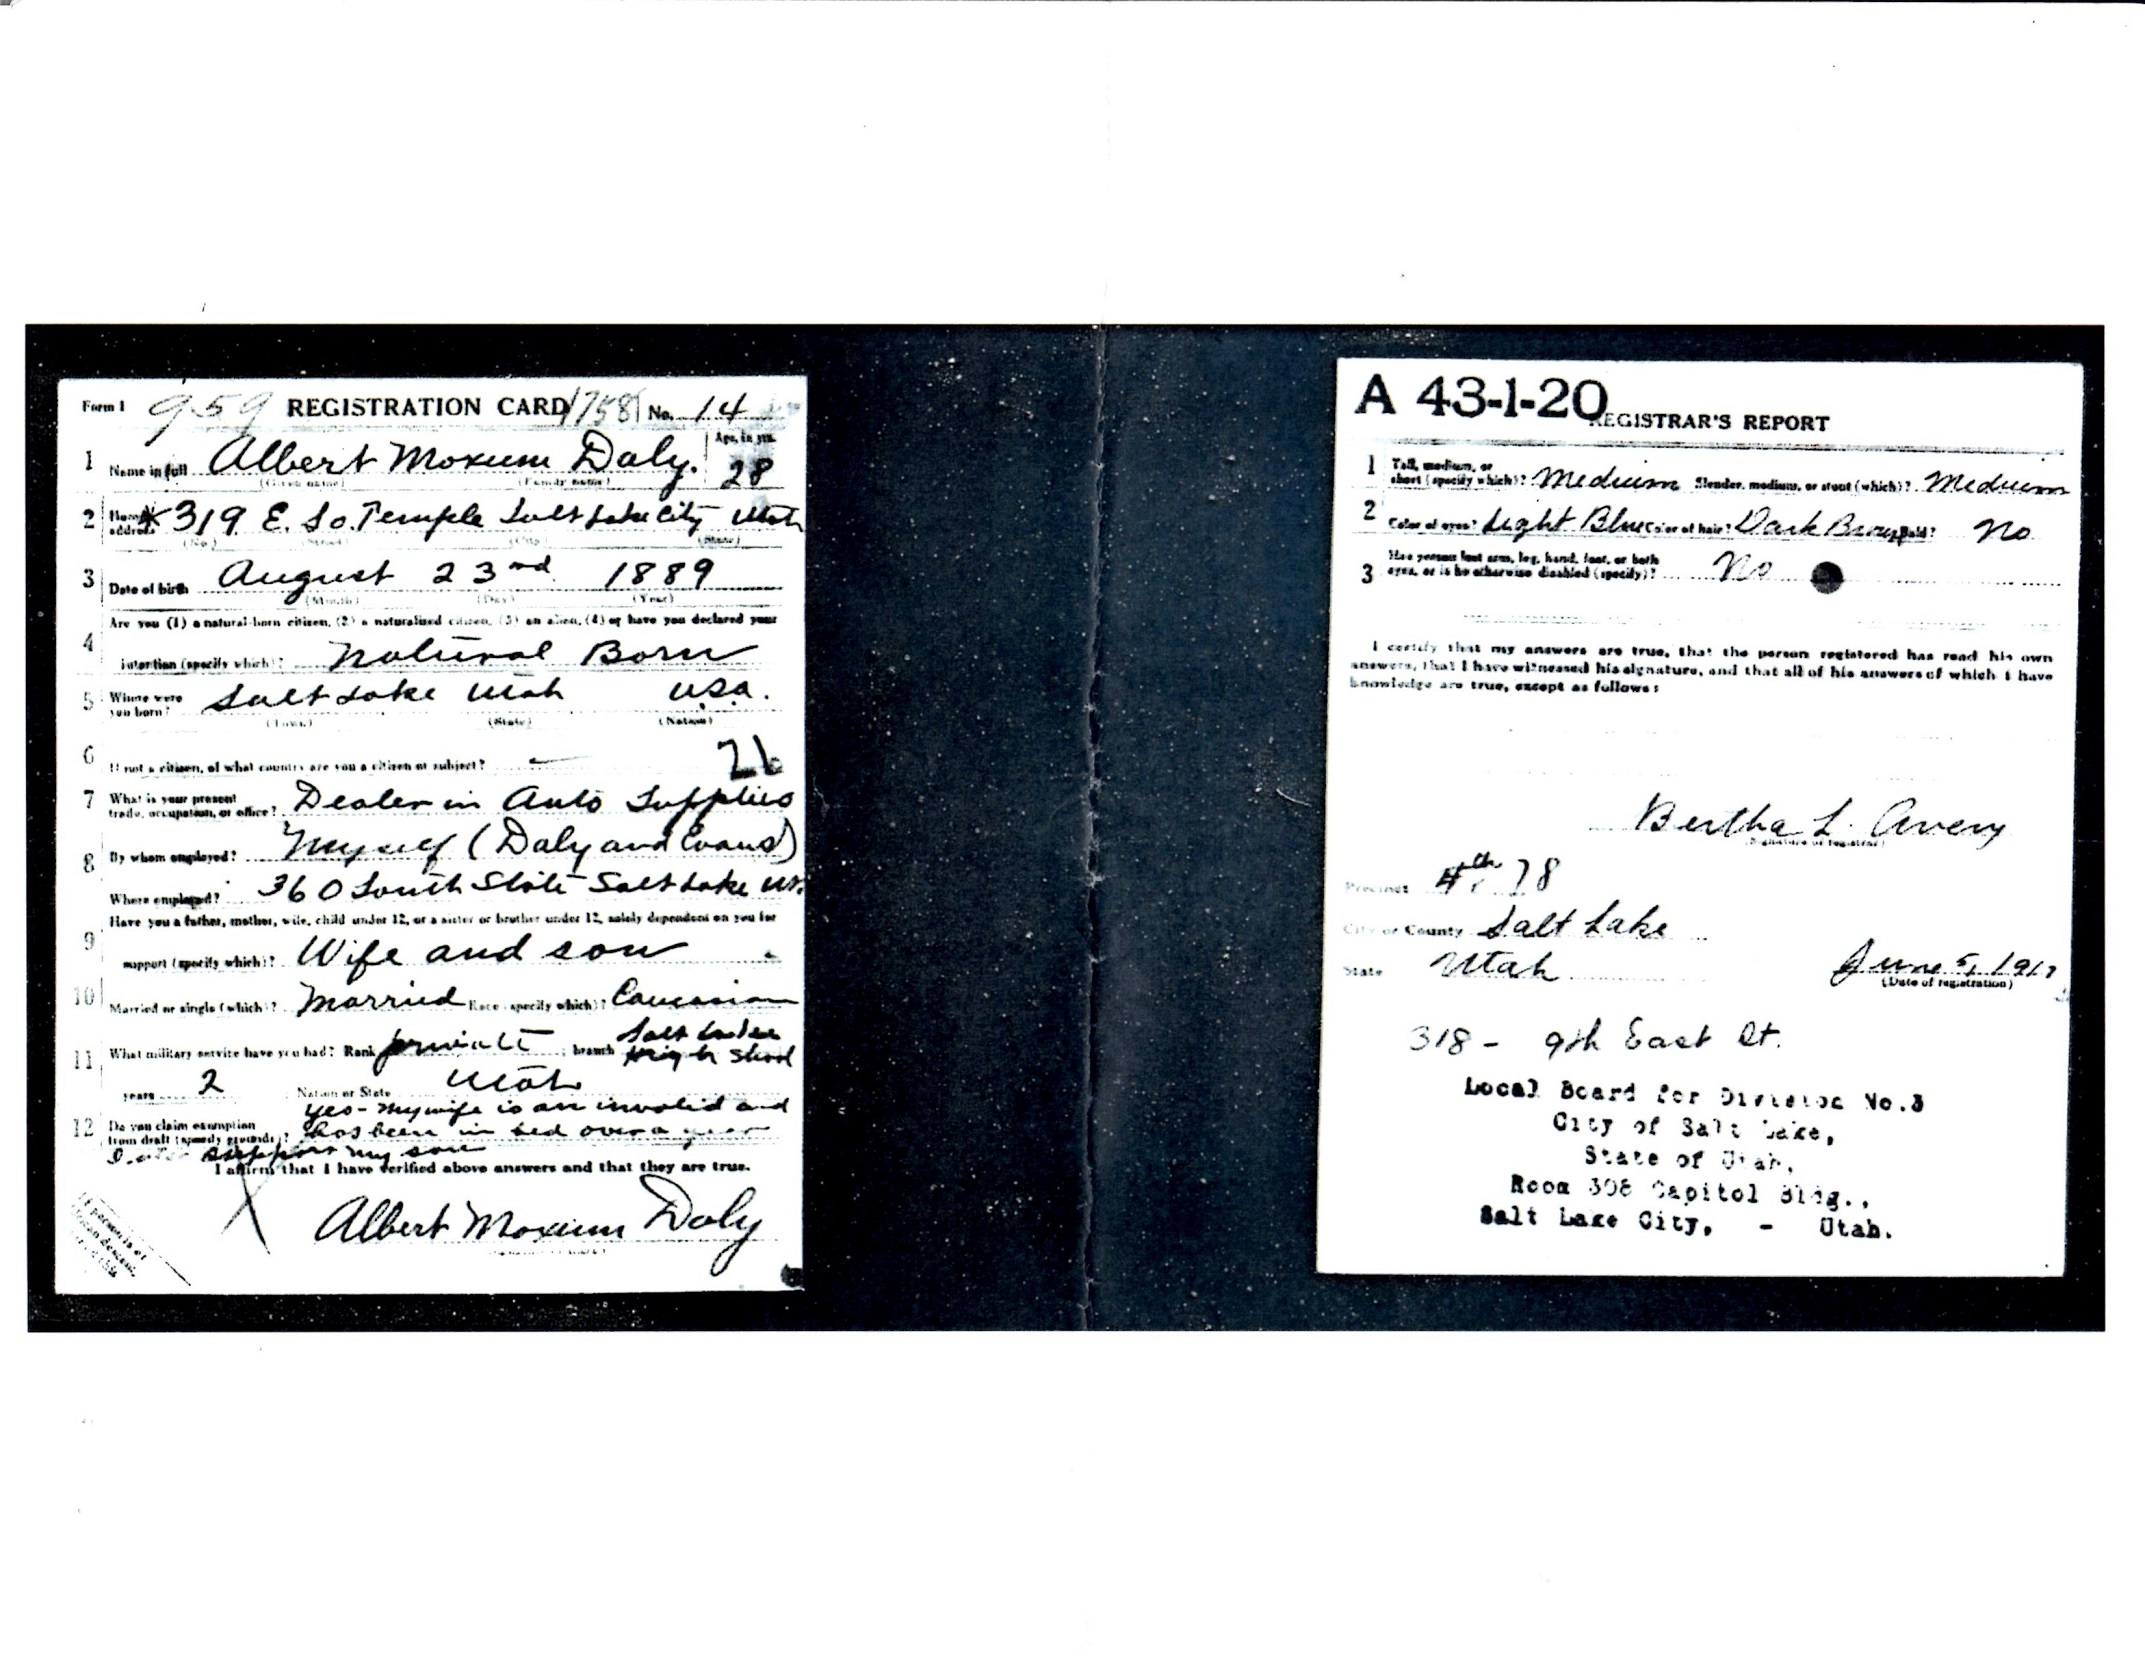 Form 1 959 REGISTRATION CARD 1758 No. 14
1 Name in full Albert Moxum Daly. Age, in yrs. 28
(Given name) (Family name)
2 Home address 319 E. So. Temple Salt Lake City Utah
(No.) (Street) (City) (State)
3 Date of birth August 23rd 1889
(Month) (Day) (Year)
Are you (1) a natural-born citizen, (2) a naturalized citizen, (3) an alien, (4) or have you declared your
4 intention (specify which)? Natural Born
5 Where were you born? Salt Lake Utah USA.
(Town) (State) (Nation)
6 If not a citizen, of what country are you a citizen or subject? —
21
7 What is your present trade, occupation, or office? Dealer in Auto Supplies
8 By whom employed? Myself (Daly and Evans)
Where employed? 360 South State Salt Lake Ut.
Have you a father, mother, wife, child under 12, or a sister or brother under 12, solely dependent on you for
9 support (specify which)? Wife and son
10 Married or single (which)? Married Race (specify which)? Caucasian
11 What military service have you had? Rank private ; branch Salt Lake High School
years 2 Nation or State Utah
12 Do you claim exemption from draft (specify grounds)? Yes - My wife is an invalid and
has been in bed over a year
I support my son
I affirm that I have verified above answers and that they are true.
X Albert Moxum Daly
If person is of
African descent,
A 43-1-20
REGISTRAR'S REPORT
1 Tall, medium, or short (specify which)? Medium Slender, medium, or stout (which)? Medium
2 Color of eyes? Light Blue Color of hair? Dark Brown Bald? No
3 Has person lost arm, leg, hand, foot, or both eyes, or is he otherwise disabled (specify)? No
I certify that my answers are true, that the person registered has read his own
answers, that I have witnessed his signature, and that all of his answers of which I have
knowledge are true, except as follows:
Bertha L. Avery
(Signature of registrar)
Precinct 78
City or County Salt Lake
State Utah June 5, 1917
(Date of registration)
318 - 9th East St.
Local Board for Division No.3
City of Salt Lake,
State of Utah,
Room 308 Capitol Bldg.,
Salt Lake City, - Utah.